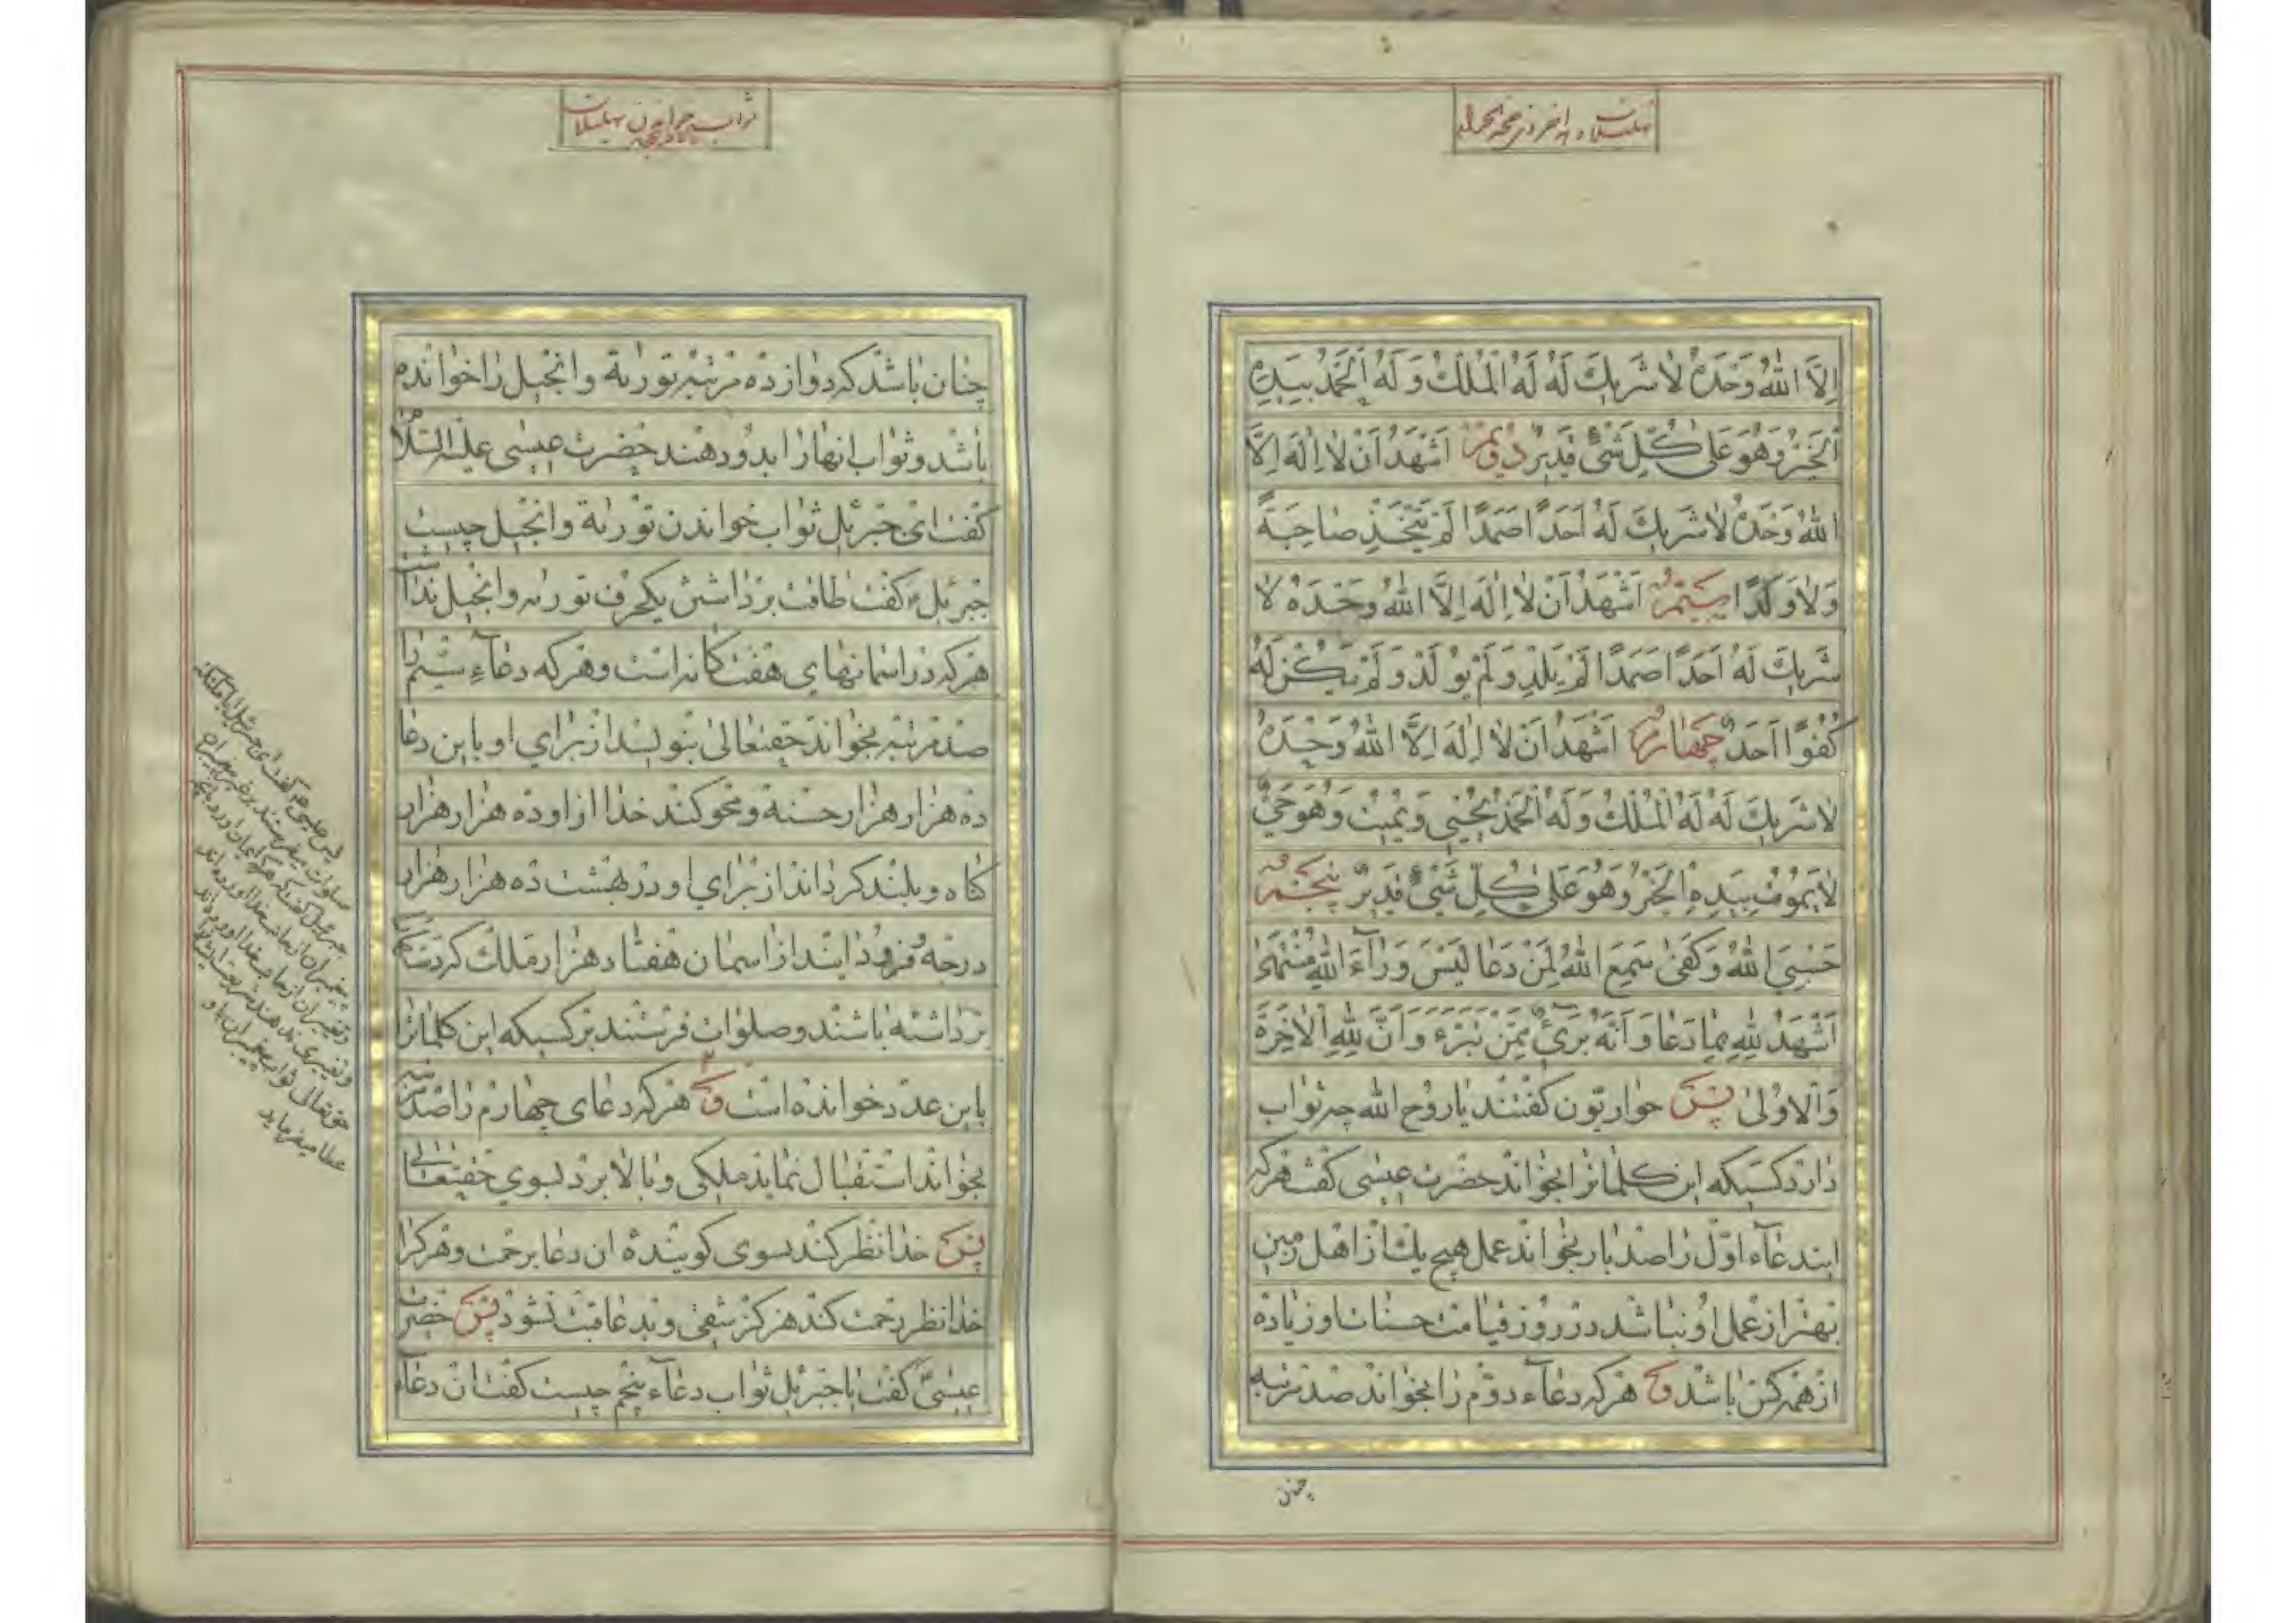 إِلَّا اللهُ وَحْدَهُ لَا شَرِيكَ لَهُ لَهُ الْمُلْكُ وَلَهُ الْحَمْدُ بِيَدِهِ
الْخَيْرُ وَهُوَ عَلَى كُلِّ شَيْءٍ قَدِيرٌ دویم اَشْهَدُ اَنْ لَا اِلٰهَ اِلَّا
اللهُ وَحْدَهُ لَا شَرِيكَ لَهُ اَحَدًا صَمَدًا لَمْ يَتَّخِذْ صَاحِبَةً
وَلَا وَلَدًا سیّم اَشْهَدُ اَنْ لَا اِلٰهَ اِلَّا اللهُ وَحْدَهُ لَا
شَرِيكَ لَهُ اَحَدًا صَمَدًا لَمْ يَلِدْ وَلَمْ يُولَدْ وَلَمْ يَكُنْ لَهُ
كُفُوًا اَحَدٌ چهارم اَشْهَدُ اَنْ لَا اِلٰهَ اِلَّا اللهُ وَحْدَهُ
لَا شَرِيكَ لَهُ لَهُ الْمُلْكُ وَلَهُ الْحَمْدُ يُحْيِي وَيُمِيتُ وَهُوَ حَيٌّ
لَا يَمُوتُ بِيَدِهِ الْخَيْرُ وَهُوَ عَلَى كُلِّ شَيْءٍ قَدِيرٌ پنجم
حَسْبِيَ اللهُ وَكَفَى سَمِعَ اللهُ لِمَنْ دَعَا لَيْسَ وَرَاءَ اللهِ مُنْتَهَى
اَشْهَدُ لِلّٰهِ بِمَا دَعَا وَاَنَّهُ بَرِیءٌ مِمَّنْ تَبَرَّءَ وَاَنَّ لِلّٰهِ الْآخِرَةَ
وَالْاُولَى پس حواریّون گفتند یا روح الله چه ثواب
دارد کسیکه این کلماترا بخواند حضرت عیسی گفت هرکه
این دعاء اوّل را صد بار بخواند عمل هیچ یک از اهل زمین
بهتر از عمل او نباشد در روز قیامت حسنات او زیاده
از همه کس باشد و هرکه دعاء دوّم را بخواند صد مرتبه
چنان
ثواب خواندن تهلیلات
چنان باشد که دوازده مرتبه توریة و انجیل را خوانده
باشد و ثواب انها را بدو دهند حضرت عیسی علیه السّلام
گفت ای جبرئیل ثواب خواندن توریة و انجیل چیست
جبرئیل گفت طاقت برداشتن یکحرف توریه و انجیل ندارد
هرکه در اسمانهای هفت‌کانه است و هرکه دعاء سیّم را
صد مرتبه بخواند حقتعالی بنویسد از برای او باین دعا
ده هزار هزار حسنة و محو کند خدا از او ده هزار هزار
گناه و بلند گرداند از برای او در بهشت ده هزار هزار
درجه و فرود ایند از اسمان هفتاد هزار ملک که دستها
برداشته باشند و صلوات فرستند بر کسیکه این کلماترا
باین عدد خوانده است و هرکه دعای چهارم را صد مرتبه
بخواند استقبال نماید ملکی و بالا برد بسوی حقتعالی
پس خدا نظر کند بسوی گوینده ان دعا برحمت و هرکرا
خدا نظر رحمت کند هرگز شقی و بدعاقبت نشود پس حضرت
عیسی گفت یا جبرئیل ثواب دعاء پنجم چیست گفت ان دعاء
پس عیسی گفت ای جبرئیل ایا ملائکه
صلوات میفرستند بر غیر پیغمبران
حقتعالی ثواب پیغمبران باو
عطا میفرماید